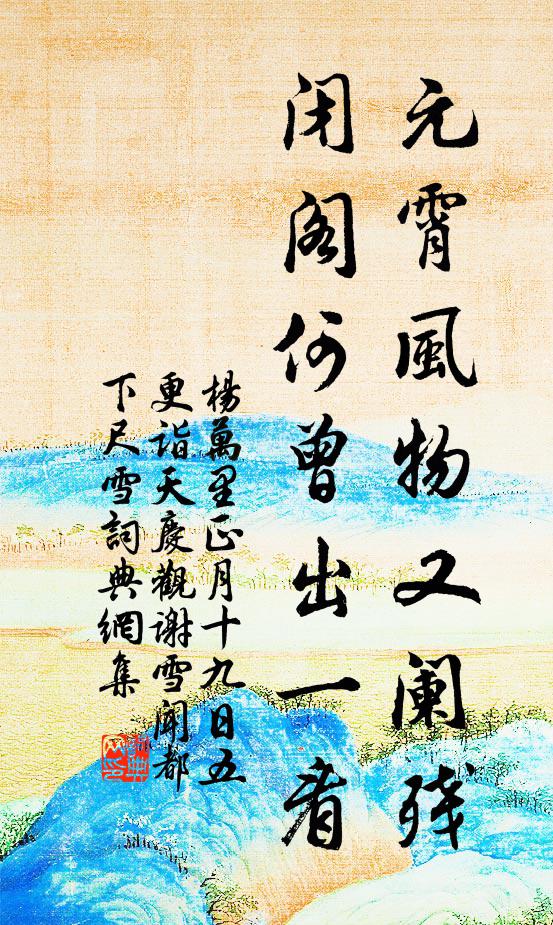 元霄風物又阑殘
闭阁何曾出一看
楊萬里正月十九日五
更詣天慶觀謝雪聞都
下尺雪詞典網集